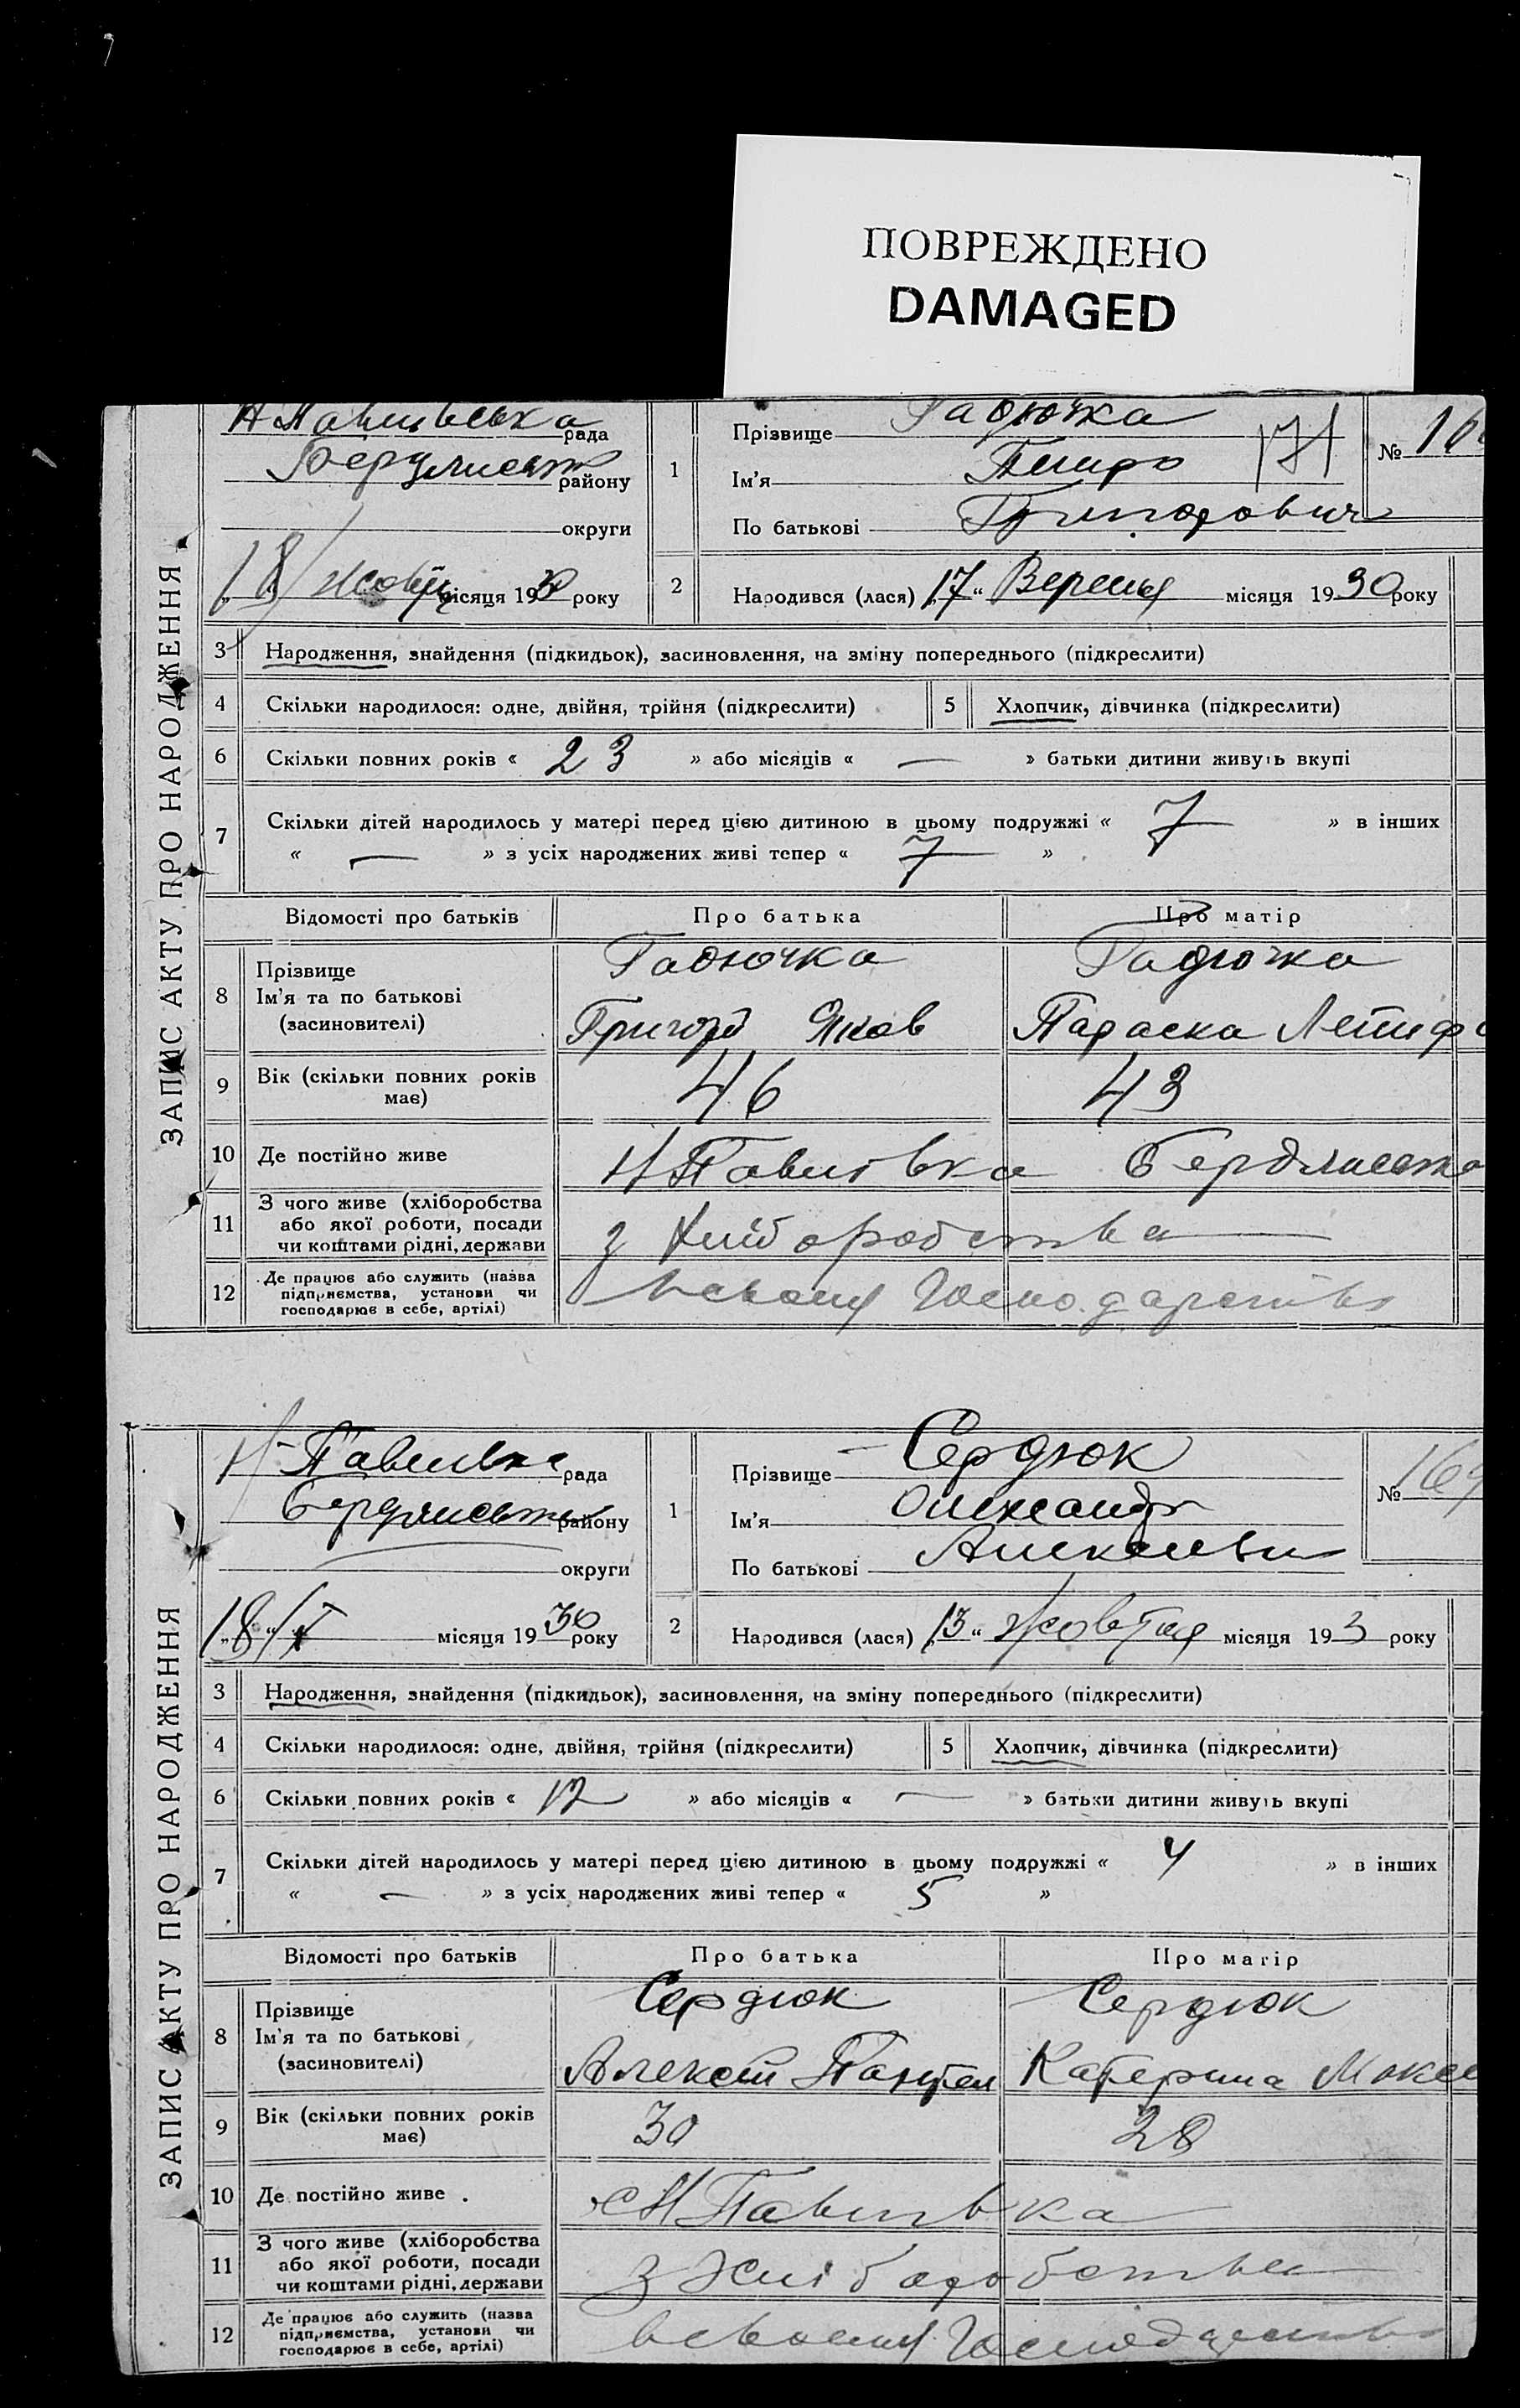 ПОВРЕЖДЕНО
DAMAGED
ЗАПИС АКТУ ПРО НАРОДЖЕННЯ
рада
району
округи
18 місяця 1930 року
1
Прізвище Гадючка
Ім'я 171
По батькові Григорович
№ 16
2
Народився (лася) „17“ місяця 1930 року
3 Народження, знайдення (підкидьок), засиновлення, на зміну попереднього (підкреслити)
4 Скільки народилося: одне, двійня, трійня (підкреслити) 5 Хлопчик, дівчинка (підкреслити)
6 Скільки повних років « 23 » або місяців « — » батьки дитини живуть вкупі
7 Скільки дітей народилось у матері перед цією дитиною в цьому подружжі « 7 » в інших
« — » з усіх народжених живі тепер « 7 »
Відомості про батьків Про батька Про матір
8 Прізвище Гадючка Гадючка
Ім'я та по батькові
(засиновителі) Григорій Яков Параска
9 Вік (скільки повних років має) 46 43
10 Де постійно живе Н Павлівка
11 З чого живе (хліборобства
або якої роботи, посади
чи коштами рідні, держави з хліборобства
12 Де працює або служить (назва
підприємства, установи чи
господарює в себе, артілі)
ЗАПИС АКТУ ПРО НАРОДЖЕННЯ
Н-Павлівка рада
району
округи
18 місяця 1930 року
1
Прізвище Сердюк
Ім'я Олександр
По батькові
№ 169
2
Народився (лася) „13“ Жовтня місяця 193 року
3 Народження, знайдення (підкидьок), засиновлення, на зміну попереднього (підкреслити)
4 Скільки народилося: одне, двійня, трійня (підкреслити) 5 Хлопчик, дівчинка (підкреслити)
6 Скільки повних років « 12 » або місяців « — » батьки дитини живуть вкупі
7 Скільки дітей народилось у матері перед цією дитиною в цьому подружжі « 4 » в інших
« — » з усіх народжених живі тепер « 5 »
Відомості про батьків Про батька Про матір
8 Прізвище Сердюк Сердюк
Ім'я та по батькові
(засиновителі) Алексей Пантел Катерина
9 Вік (скільки повних років має) 30 28
10 Де постійно живе с Н Павлівка
11 З чого живе (хліборобства
або якої роботи, посади
чи коштами рідні, держави з хліборобства
12 Де працює або служить (назва
підприємства, установи чи
господарює в себе, артілі)